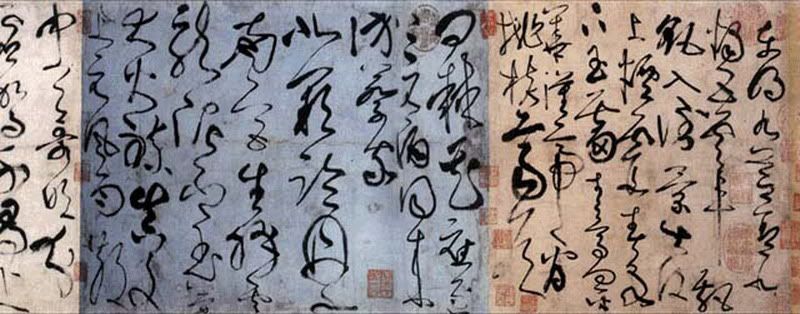 東明九芝蓋北
燭五雲車飄
飖入倒景出沒
上煙霞春泉
下玉霤青鳥向金
華漢帝看
桃核齊侯
問棘花應逐
上元酒同來
訪蔡家
北闕臨丹水
南宮生絳雲
龍泥印玉簡
大火練真文
上元風雨散
中天歌吹分
靈駕千尋上